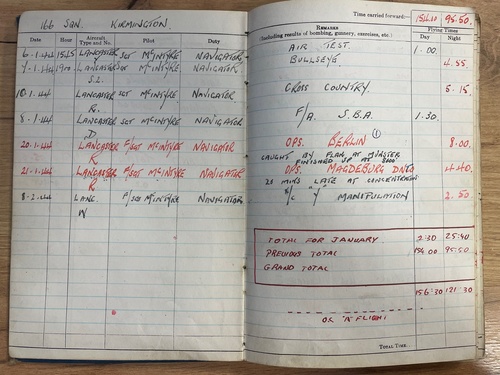 166 SQN. KIRMINGTON.
Time carried forward:— 154.10 95.50.
Date Hour Aircraft Type and No. Pilot Duty
REMARKS
(Including results of bombing, gunnery, exercises, etc.)
Flying Times
Day Night
6.1.44 1545 LANCASTER SGT MCINTYRE NAVIGATOR AIR TEST 1.00
LANCASTER SGT MCINTYRE NAVIGATOR BULLSEYE 4.55
LANCASTER SGT MCINTYRE NAVIGATOR CROSS COUNTRY 5.15
8.1.44 LANCASTER SGT MCINTYRE NAVIGATOR F/A. S.B.A. 1.30.
D
20.1.44 LANCASTER F/SGT MCINTYRE NAVIGATOR OPS. BERLIN 1 8.00
K CAUGHT BY FLAK AT MUNSTER
FINISHED UP AT
21.1.44 LANCASTER F/SGT MCINTYRE NAVIGATOR OPS. MAGDEBURG 4.40.
20 MINS LATE AT CONCENTRATION
8-2-44 LANC. F/SGT MCINTYRE NAVIGATOR "Y" MANIPULATION 2.50
W
TOTAL FOR JANUARY 2.30 25.40
PREVIOUS TOTAL 154.00 95.50
GRAND TOTAL
156.30 121.30
OC 'A' FLIGHT
TOTAL TIME